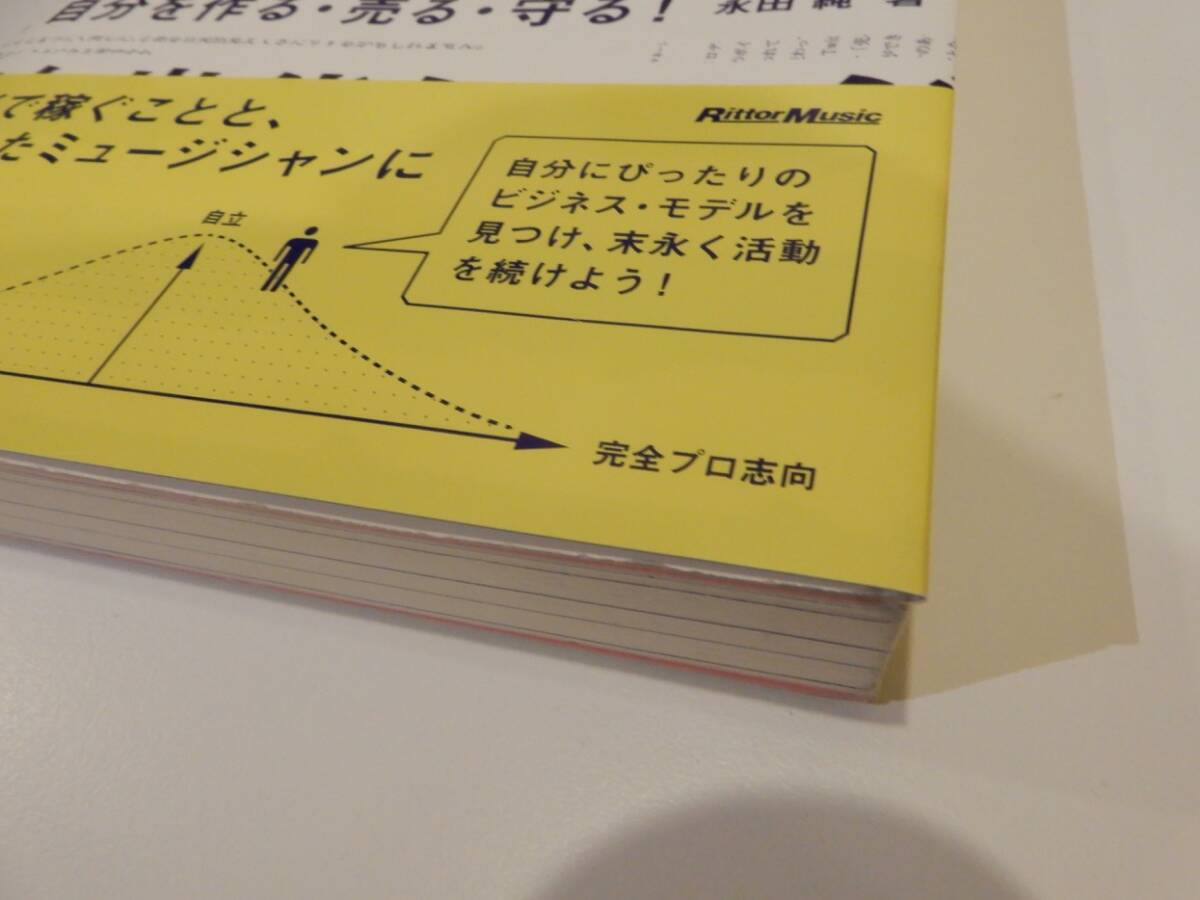 自分を作る・売る・守る!
永田 純 著
で稼ぐことと、
たミュージシャンに
RittorMusic
自分にぴったりの
ビジネス・モデルを
見つけ、末永く活動
を続けよう!
自立
完全プロ志向